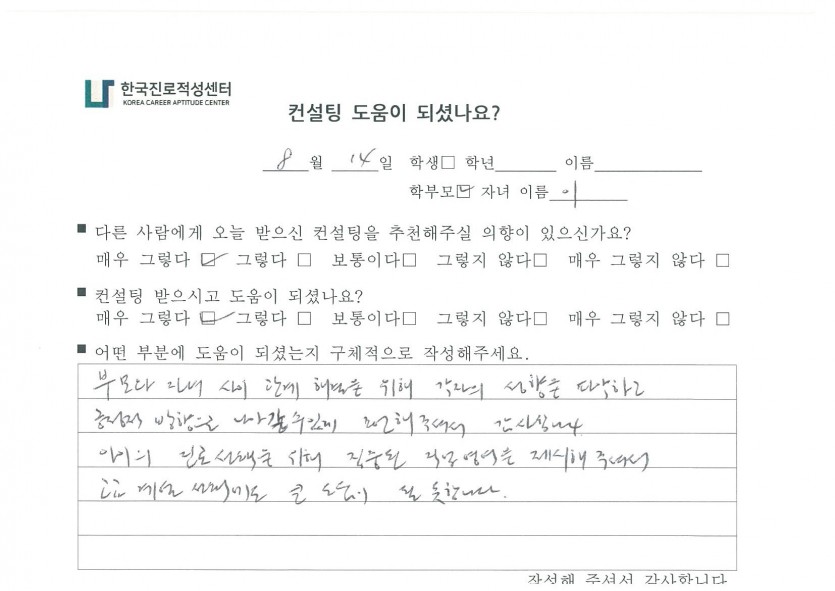 한국진로적성센터
KOREA CAREER APTITUDE CENTER
컨설팅 도움이 되셨나요?
8 월 14 일 학생□ 학년 이름
학부모☑ 자녀 이름 이
■ 다른 사람에게 오늘 받으신 컨설팅을 추천해주실 의향이 있으신가요?
매우 그렇다 ☑ 그렇다 □ 보통이다□ 그렇지 않다□ 매우 그렇지 않다 □
■ 컨설팅 받으시고 도움이 되셨나요?
매우 그렇다 ☑ 그렇다 □ 보통이다□ 그렇지 않다□ 매우 그렇지 않다 □
■ 어떤 부분에 도움이 되셨는지 구체적으로 작성해주세요.
부모와 자녀 사이 관계 해결을 위해 각자의 성향을 파악하고
긍정적 방향으로 나아갈수있게 조언해주셔서 감사합니다
아이의 진로선택을 위해 집중된 직업영역을 제시해 주셔서
고교 계열 선택에도 큰 도움이 될 듯합니다.
작성해 주셔서 감사합니다